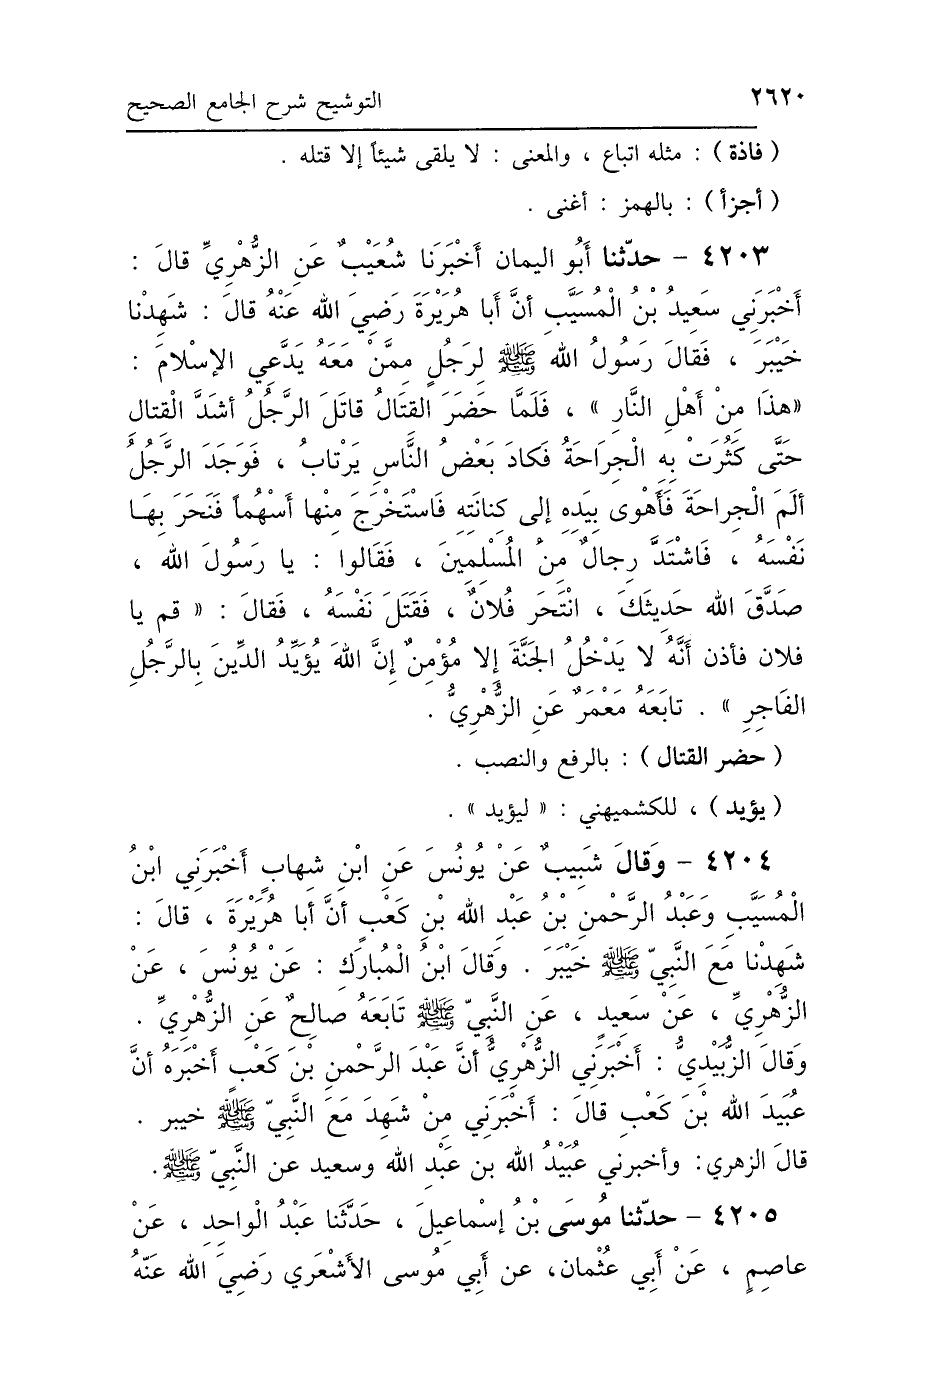 ٢٦٢٠ التوشيح شرح الجامع الصحيح
( فاذة ) : مثله اتباع ، والمعنى : لا يلقى شيئاً إلا قتله .
( أجزأ ) : بالهمز : أغنى .
٤٢٠٣ - حدّثنا أَبُو اليمان أَخْبَرَنا شُعَيْبٌ عَنِ الزُّهْرِيِّ قالَ :
أَخْبَرَنِي سَعِيدُ بْنُ الْمُسَيَّبِ أنَّ أَبا هُرَيْرَةَ رَضِيَ الله عَنْهُ قالَ : شَهِدْنا
خَيْبَرَ ، فَقالَ رَسُولُ الله ﷺ لِرَجُلٍ مِمَّنْ مَعَهُ يَدَّعِي الإسْلامَ :
«هذَا مِنْ أَهْلِ النَّارِ » ، فَلَمَّا حَضَرَ القتَالُ قاتَلَ الرَّجُلُ أشَدَّ الْقِتالِ
حَتَّى كَثُرَتْ بِهِ الْجِراحَةُ فَكادَ بَعْضُ النَّاسِ يَرْتابُ ، فَوَجَدَ الرَّجُلُ
ألَمَ الْجِراحَةَ فَأَهْوى بِيَدِهِ إلى كِنانَتِهِ فَاسْتَخْرَجَ مِنْها أَسْهُماً فَنَحَرَ بِهَا
نَفْسَهُ ، فَاشْتَدَّ رِجالٌ مِنُ المُسْلِمِينَ ، فَقَالوا : يا رَسُولَ الله ،
صَدَّقَ الله حَدِيثَكَ ، انْتَحَرَ فُلانٌ ، فَقَتَلَ نَفْسَهُ ، فَقالَ : « قم يا
فلان فأذن أنَّهُ لا يَدْخُلُ الجَنَّةَ إلا مُؤْمِنٌ إنَّ اللهَ يُؤَيِّدُ الدِّينَ بِالرَّجُلِ
الفَاجِرِ » . تابَعَهُ مَعْمَرٌ عَنِ الزُّهْرِيُّ .
( حضر القتال ) : بالرفع والنصب .
( يؤيد ) ، للكشميهني : « ليؤيد » .
٤٢٠٤ - وَقالَ شَبِيبٌ عَنْ يُونُسَ عَنِ ابْنِ شِهابٍ أَخْبَرَنِي ابْنُ
الْمُسَيَّبِ وَعَبْدُ الرَّحْمنِ بْنُ عَبْدِ الله بْنِ كَعْبٍ أنَّ أبا هُرَيْرَةَ ، قالَ :
شَهِدْنا مَعَ النَّبِيّ ﷺ خَيْبَرَ . وَقالَ ابْنُ الْمُبارَكِ : عَنْ يُونُسَ ، عَنْ
الزُّهْرِيِّ ، عَنْ سَعِيدٍ ، عَنِ النَّبِيّ ﷺ تَابَعَهُ صالِحٌ عَنِ الزُّهْرِيِّ .
وَقالَ الزُّبَيْدِيُّ : أَخْبَرَنِي الزهْرِيُّ أنَّ عَبْدَ الرَّحْمنِ بْنَ كَعْبٍ أخْبَرَهُ أنَّ
عُبَيدَ الله بْنَ كَعْبٍ قالَ : أَخْبَرَنِي مِنْ شَهِدَ مَعَ النَّبِيّ ﷺ خيبر .
قالَ الزهري: وأخبرني عُبَيْدُ الله بن عَبْدِ الله وسعيد عن النَّبِيّ ﷺ.
٤٢٠٥ - حدّثنا مُوسَى بْنُ إسْماعِيلَ ، حَدَّثَنا عَبْدُ الْواحِدِ ، عَنْ
عاصِمٍ ، عَنْ أَبِي عُثْمان، عن أَبِي مُوسى الأشْعَري رَضِيَ الله عَنْهُ